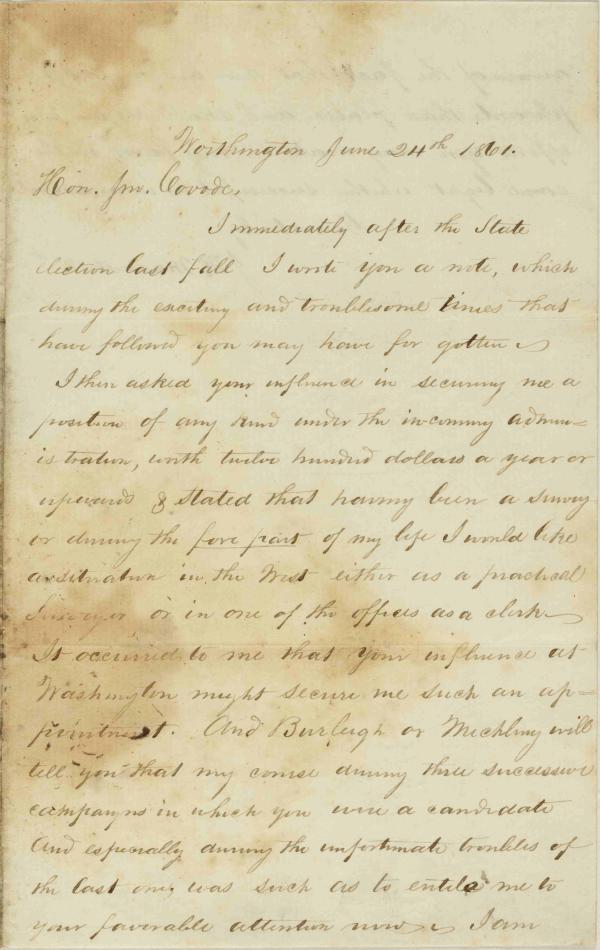 Worthington June 24th 1861.
Hon. Jno. Covode,
Immediately after the State
election last fall I wrote you a note, which
during the exciting and troublesome times that
have followed you may have for gotten
I then asked your influence in securing me a
position of any kind under the incoming admin=
istration, worth twelve hundred dollars a year or
upwards & stated that having been a survey
or during the fore part of my life I would like
a situation in the West either as a practical
Surveyor or in one of the offices as a clerk
It occurred to me that your influence at
Washington might secure me such an ap=
pointment. And Burleigh or Mechling will
tell you that my course during three successive
campaigns in which you were a candidate
And especially during the unfortunate troubles of
the last one, was such as to entitle me to
your favorable attention now. I am